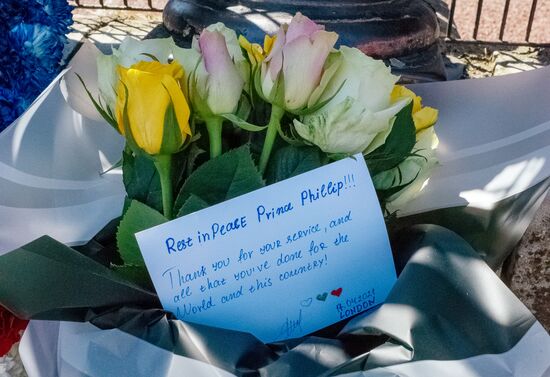 Rest in Peace Prince Phillip!!!
Thank you for your service, and
all that you've done for the
World and this country!
04.2021
LONDON